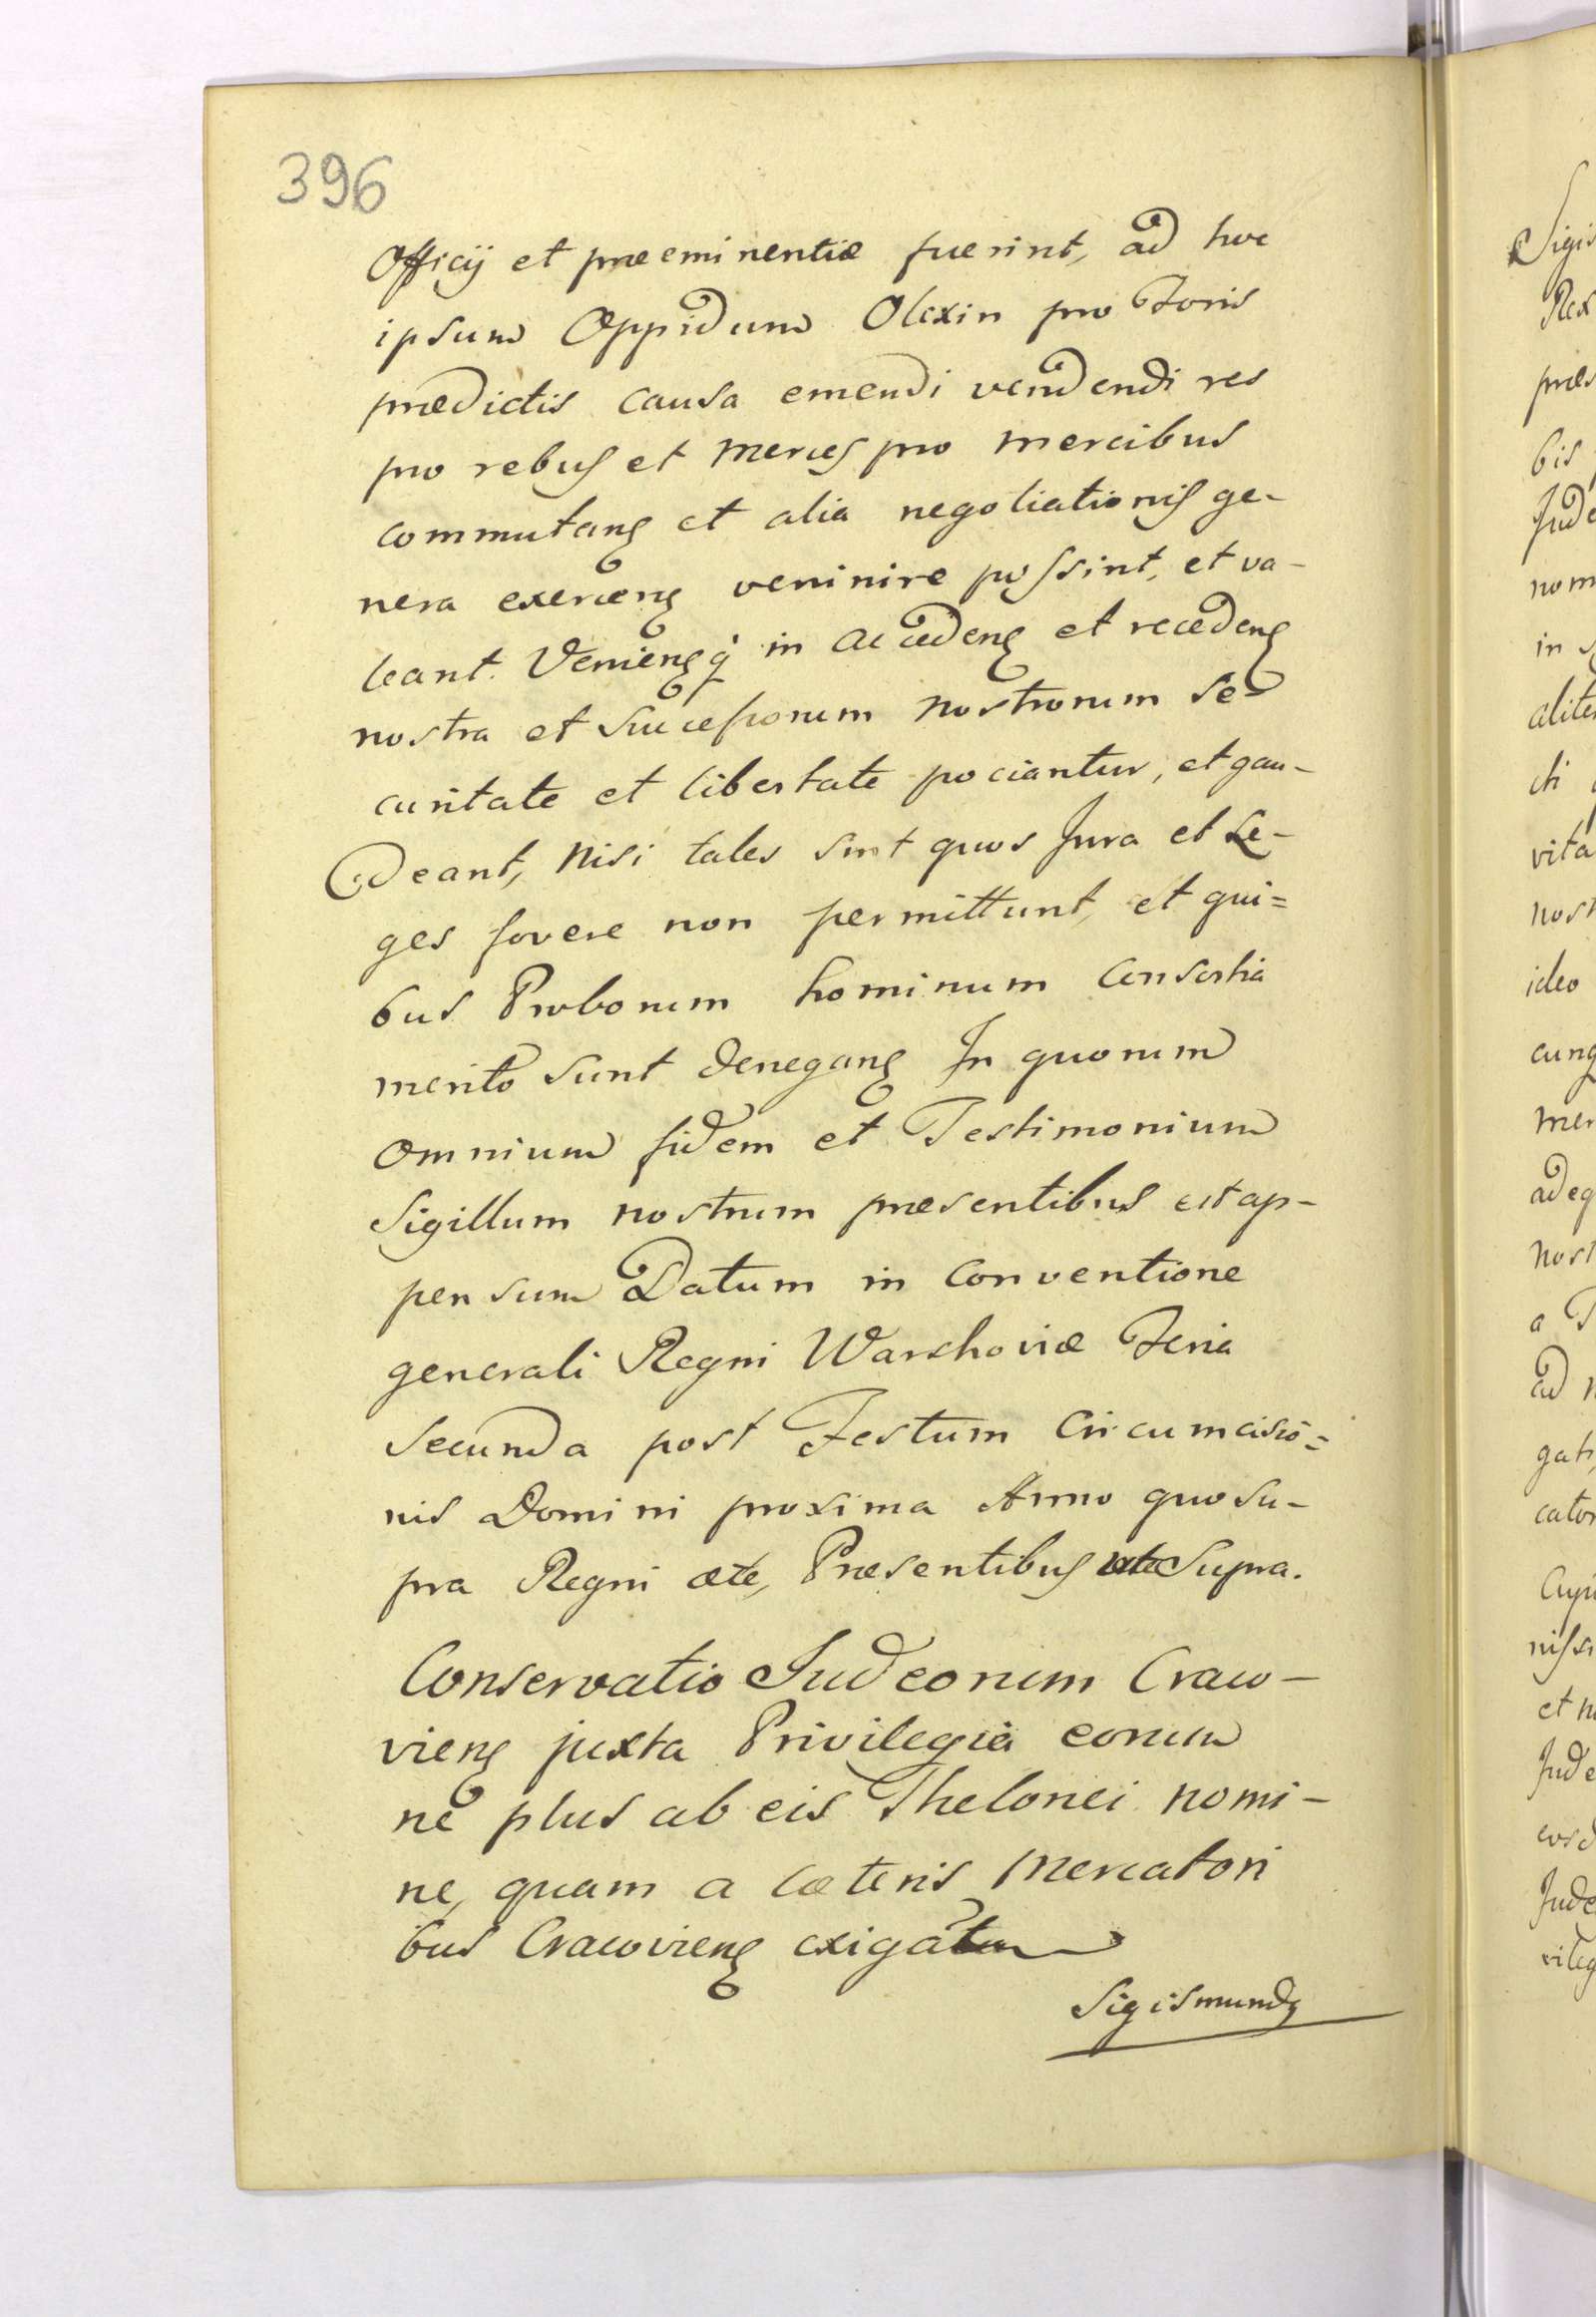 396
Officij et præeminentiæ fuerint, ad hoc
ipsum Oppidum Olexin pro Foris
prædictis causa emendi vendendi res
pro rebus et merces pro mercibus
commutang et alia negotiationis ge-
nera exerceng veninire possint, et va-
leant. Veniengq in accedeng et recedeng
nostra et successorum nostrorum se-
curitate et libertate pociantur, et gau-
deant, nisi tales sint quos Jura et Le-
ges fovere non permittunt, et qui=
bus Proborum hominum consortia
merito sunt denegang In quorum
omnium fidem et Testimonium
Sigillum nostrum præsentibus est ap-
pensum Datum in Conventione
generali Regni Warschoviæ Feria
Secunda post Festum Circumcisio=
nis Domini proxima Anno quo su-
pra Regni etc, Præsentibus ut Supra.
Conservatio Judeorum Craco-
vieng juxta Privilegia eorum
ne plus ab eis Thelonei nomi-
ne, quam a cæteris Mercatori
bus Cracovieng exigatur
Sigismundg
Sigis
Rex
præs
bis
Jude
nom
in
alite
cti
vita
nost
ideo
cunq
mer
ad eq
nost
a
ad
gati
cator
Cupi
nissi
et n
Jude
eosd
Jude
vileg